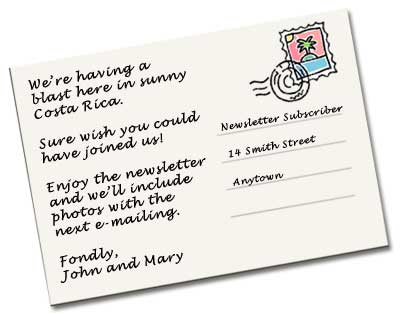 We're having a
blast here in sunny
Costa Rica.
Sure wish you could
have joined us!
Enjoy the newsletter
and we'll include
photos with the
next e-mailing.
Fondly,
John and Mary
Newsletter Subscriber
14 Smith Street
Anytown